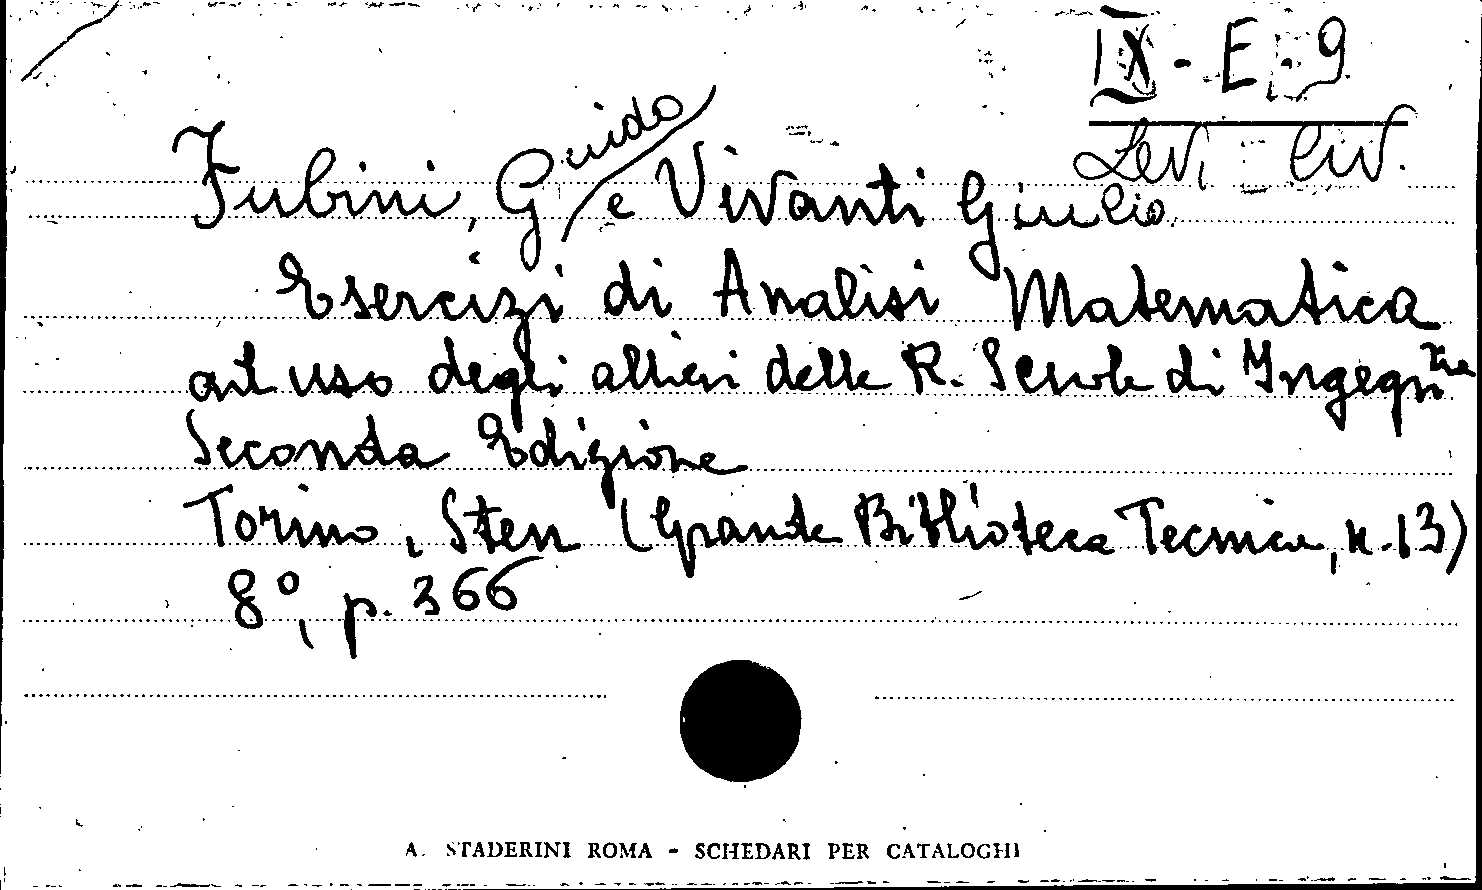 IX - E - 9
Levi-Civ.
Fubini, Guido e Vivanti Giulio
Esercizi di Analisi Matematica
ad uso degli allievi delle R. Scuole di Ingegn.rie
Seconda Edizione
Torino, Sten (Grande Biblioteca Tecnica, n. 13)
8°, p. 366
A. STADERINI ROMA - SCHEDARI PER CATALOGHI